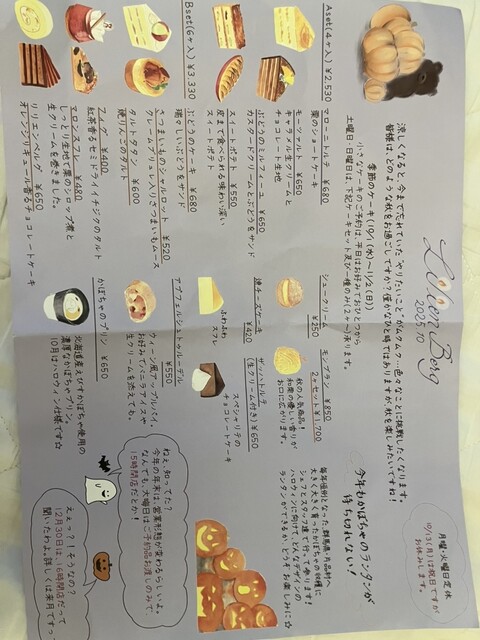 Lilien Berg
2025.10
月曜・火曜日定休
10/13(月)は祝日ですが
お休みします。
涼しくなると、今まで忘れていた“やりたいこと”がムクムク…色々なことに挑戦したくなります。
皆様は、どのような秋をお過ごしですか？僅かなひと時ではありますが秋を楽しみたいですね！
季節のケーキ(10/1(水)〜11/2(日))
小さなケーキのご予約は、平日はお好みでおひとつから
土曜日・日曜日は、下記ケーキセット及び一種のみ(2ヶ〜)承ります。
Aset(4ヶ入) ¥2,530
マローニトルテ ¥680
栗のショートケーキ
モーツァルト ¥650
キャラメル生クリームと
チョコレート生地
ぶどうのミルフィーユ ¥650
カスタードクリームとぶどうをサンド
スイートポテト ¥550
皮まで食べられる味わい深い
スイートポテト
Bset(6ヶ入) ¥3,330
ぶどうのケーキ ¥680
瑞々しいぶどうをサンド
さつまいものシャルロット ¥520
クレームブリュレ入りさつまいもムース
タルトタタン ¥600
硬りんごのタルト
フィグ ¥400
紅茶香るセミドライイチジクのタルト
マロンスフレ ¥480
しっとり生地で栗のシロップ煮と
生クリームを巻きました。
リリエンベルグ ¥650
オレンジリキュール香るチョコレートケーキ
シュークリーム
¥250
モンブラン ¥850
2ヶセット ¥1,700
秋の人気商品！
和栗の優しい香りが
お口に広がります。
焼チーズケーキ
¥420
ふわふわ
スフレ
ザッハトルテ
(生クリーム付き) ¥650
スペシャリテの
チョコレートケーキ
アプフェルシュトゥルーデル
¥550
ウィーン風アップルパイ。
お好みでバニラアイスや
生クリームを添えても。
かぼちゃのプリン ¥650
北海道産えびすかぼちゃ使用の
濃厚なかぼちゃプリン。
10月はハロウィン仕様です☆
今年もかぼちゃのランタンが
待ち切れない！
毎年恒例となった、群馬県・月夜野へ
大きく大きく育ったかぼちゃの収穫に
シェフとスタッフ達で行って参ります！
ハロウィンに向けてどんなデザインの
ランタンができるか、どうぞお楽しみに☆
ねぇ、知ってた？
今年の年末は、営業形態が変わるらしいよ。
なんでも、大晦日はご予約品お渡しのみで、
15時閉店だとか！
えぇっ？！そうなの？
12月30日は、16時閉店だって
聞いたわよ。詳しくは来月ですって…